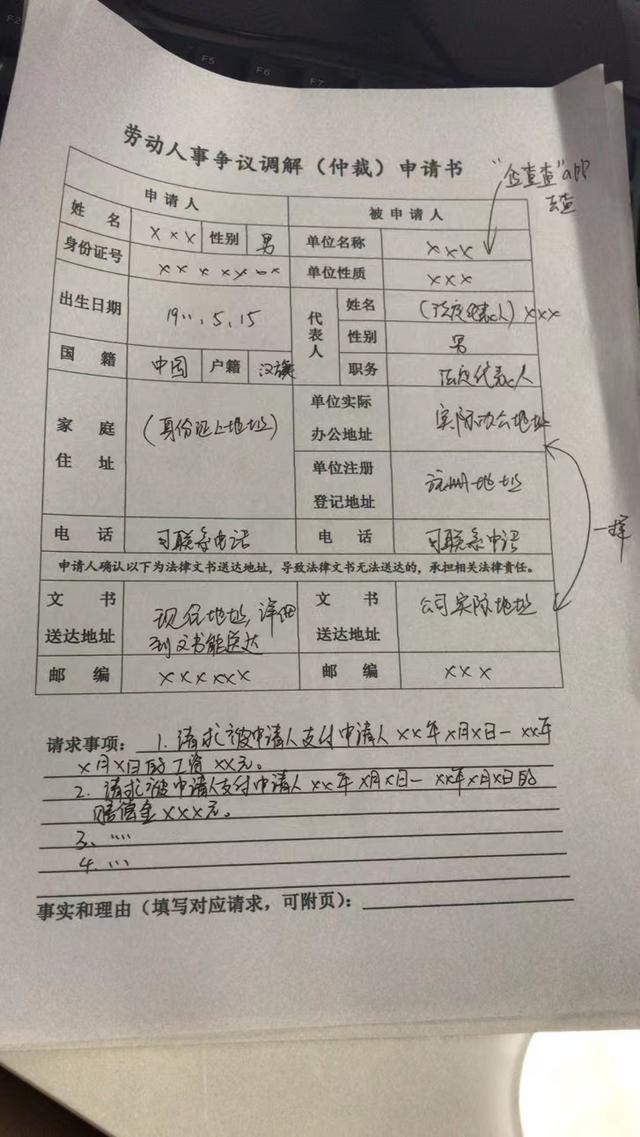 F5
F6
F7
劳动人事争议调解（仲裁）申请书
"企查查"app
去查
申请人
被申请人
姓名 XXX 性别 男 单位名称 XXX
身份证号 XXXXXXX 单位性质 XXX
出生日期 19、、.5.15 代表人 姓名 (法定代表人) XXX
性别 男
国籍 中国 户籍 汉族 职务 法定代表人
家庭住址 (身份证上地址) 单位实际办公地址 实际办公地址
单位注册登记地址 注册地址
一样
电话 可联系电话 电话 可联系电话
申请人确认以下为法律文书送达地址，导致法律文书无法送达的，承担相关法律责任。
文书送达地址 现住地址,详细到文书能送达 文书送达地址 公司实际地址
邮编 XXXXXX 邮编 XXX
请求事项：1.请求被申请人支付申请人XX年X月X日一XX年
X月X日的工资XX元。
2.请求被申请人支付申请人XX年X月X日一XX年X月X日的
赔偿金XXX元。
3、....
4、...
事实和理由（填写对应请求，可附页）：